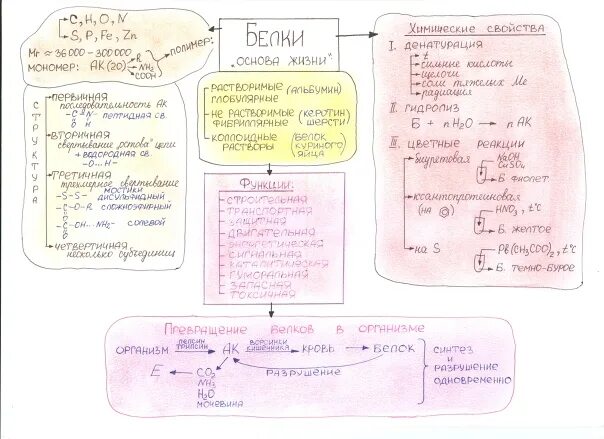 C, H, O, N
S, P, Fe, Zn
Mr ≈ 36000 - 300000
полимер:
мономер: АК(20)
R
NH₂
COOH
Белки
"основа жизни"
растворимые (альбумин)
глобулярные
не растворимые (керотин)
фибриллярные шерсти
коллоидные (белок
растворы куриного
яйца
СТРУКТУРА
первичная
последовательность АК
-C-N- пептидная св.
O H
вторичная
свертывание "остова" цепи
+ водородная св.
-O...H-
третичная
трехмерное свертывание
мостики
-S-S- дисульфидный
-C-O-R сложноэфирный
O
-C-OH...NH₂- солевой
O
четвертичная
несколько субъединиц
Функции:
строительная
транспортная
защитная
двигательная
энергетическая
сигнальная
каталитическая
гуморальная
запасная
токсичная
Химические свойства
I. денатурация
t
сильные кислоты
щелочи
соли тяжелых Ме
радиация
II. гидролиз
Б + nH₂O → n АК
III. цветные реакции
биуретовая
NaOH
CuSO₄
Б. фиолет
ксантопротеиновая
(на
)
HNO₃, t°C
Б. желтое
на S
Pb(CH₃COO)₂, t°C
Б. темно-бурое
Превращение белков в организме
организм
пепсин
трипсин
АК
ворсинки
кишечника
кровь
белок
разрушение
E
CO₂
NH₃
H₂O
мочевина
синтез
и
разрушение
одновременно